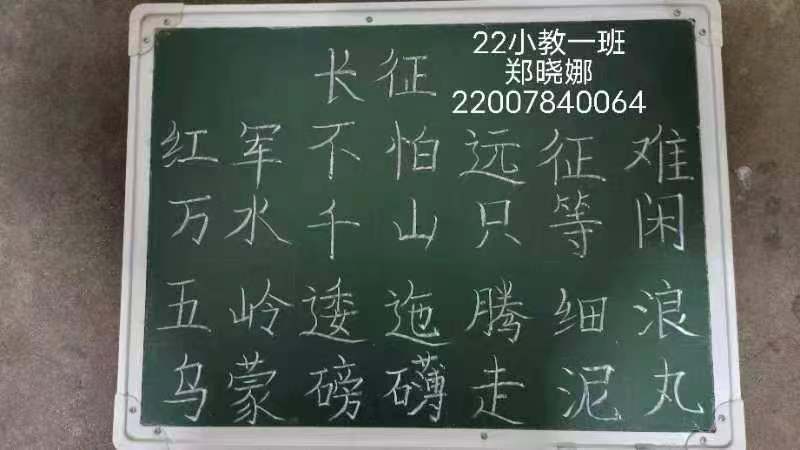 22小教一班
郑晓娜
22007840064
长征
红军不怕远征难
万水千山只等闲
五岭逶迤腾细浪
乌蒙磅礴走泥丸